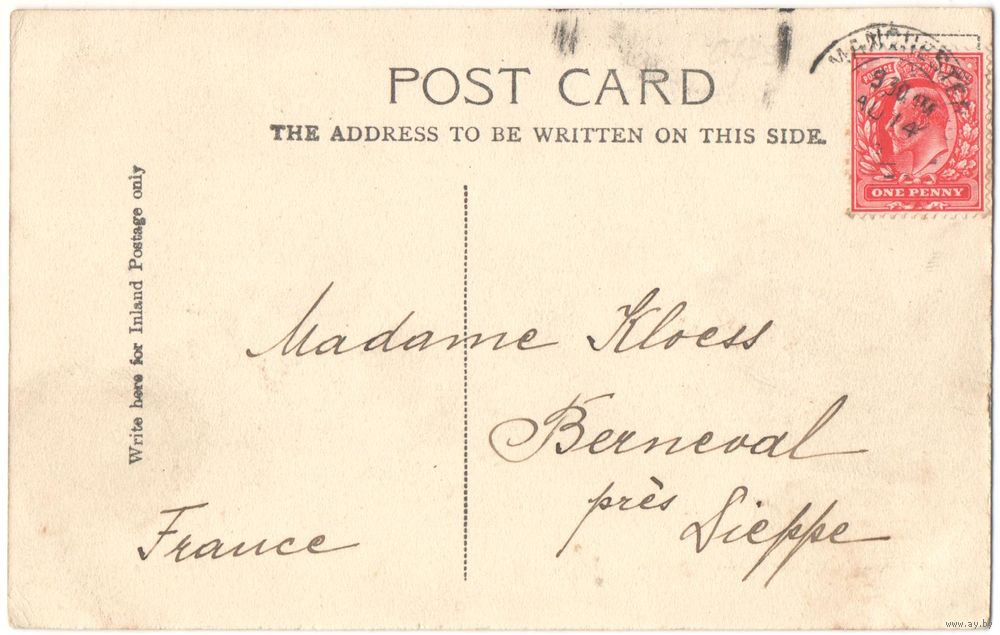 POST CARD
THE ADDRESS TO BE WRITTEN ON THIS SIDE.
MANCHESTER
AU 14
POSTAGE
ONE PENNY
Write here for Inland Postage only
Madame Kloess
Berneval
près
Dieppe
France
www.ay.by